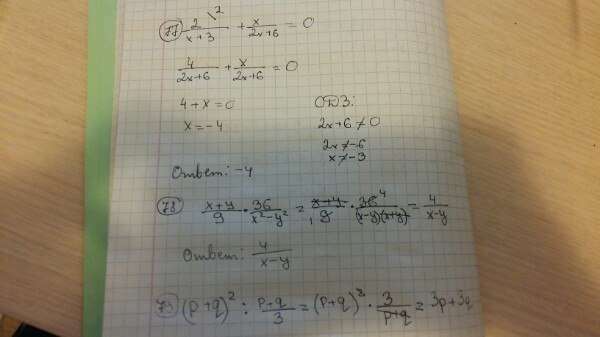 77 2/(x+3) \2 + x/(2x+6) = 0
4/(2x+6) + x/(2x+6) = 0
4 + x = 0
x = -4
ОДЗ:
2x+6 ≠ 0
2x ≠ -6
x ≠ -3
Ответ: -4
78 (x+y)/9 · 36/(x²-y²) = (x+y)/9 · 36 4/((x-y)(x+y)) = 4/(x-y)
Ответ: 4/(x-y)
(p+q)² : (p+q)/3 = (p+q)² · 3/(p+q) = 3p+3q